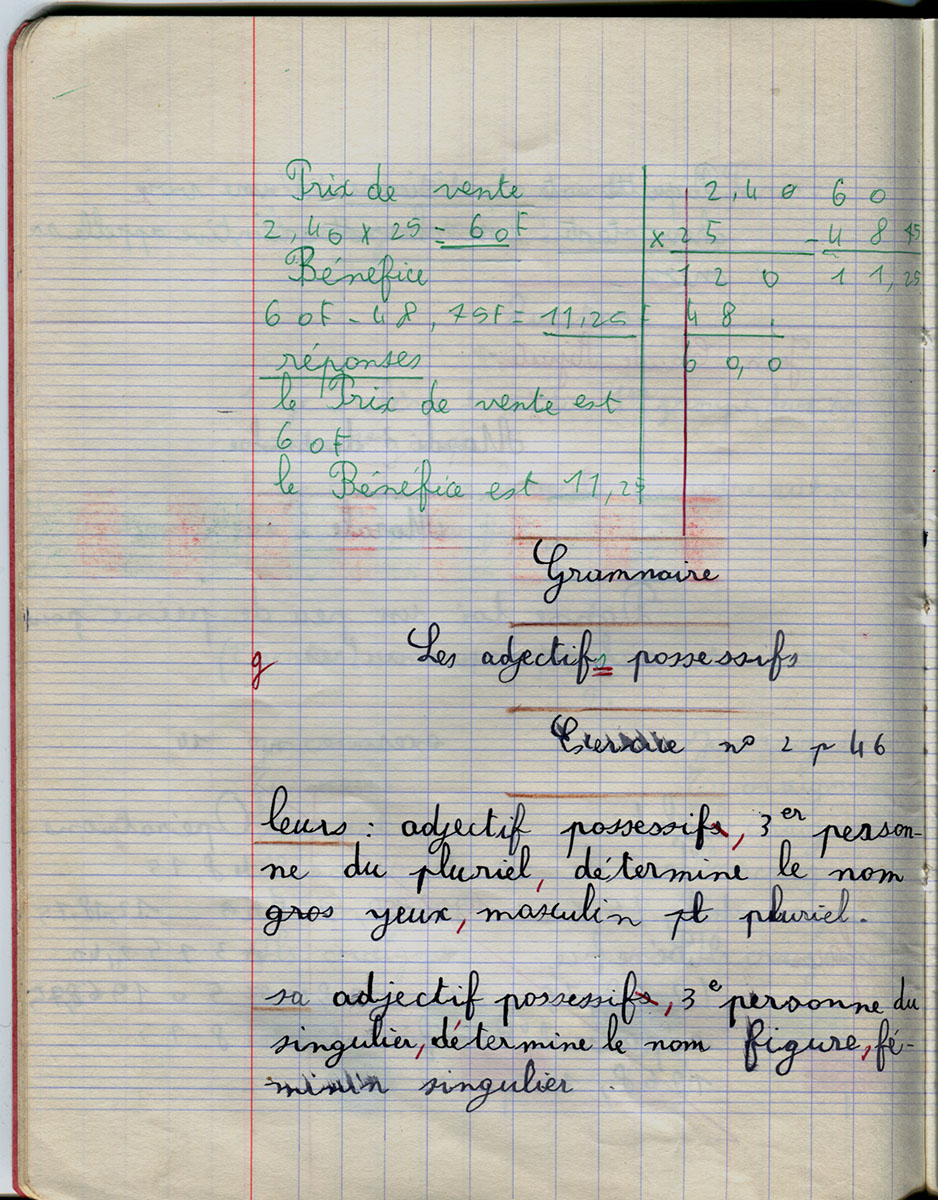 Prix de vente
2,40 x 25 = 60F
Bénéfice
60F - 48,75F = 11,25F
réponses
le Prix de vente est
60F
le Bénéfice est 11,25
2,40
x 25
120
48.
60,0
60
- 48 75
11,25
Grammaire
g
Les adjectifs possessifs
Exercice n° 2 p 46
leurs : adjectif possessif, 3er person-
ne du pluriel, détermine le nom
gros yeux, masculin pluriel.
sa adjectif possessif, 3e personne du
singulier, détermine le nom figure, fé-
minin singulier.